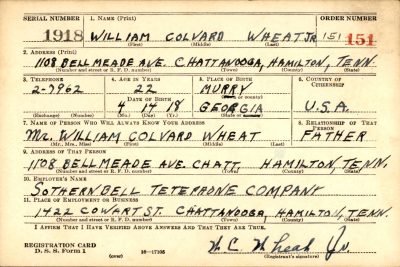 SERIAL NUMBER 1. NAME (Print) ORDER NUMBER
1918 WILLIAM COLVARD WHEAT JR 151 151
(First) (Middle) (Last)
2. ADDRESS (Print)
1108 BELLMEADE AVE. CHATTANOOGA, HAMILTON, TENN.
(Number and street or R. F. D. number) (Town) (County) (State)
3. TELEPHONE 4. AGE IN YEARS 5. PLACE OF BIRTH 6. COUNTRY OF CITIZENSHIP
2-7962 22 MURRY U.S.A.
DATE OF BIRTH (Town or county)
4 14 18 GEORGIA
(Exchange) (Number) (Mo.) (Day) (Yr.) (State or country)
7. NAME OF PERSON WHO WILL ALWAYS KNOW YOUR ADDRESS 8. RELATIONSHIP OF THAT PERSON
Mr. WILLIAM COLVARD WHEAT FATHER
(Mr., Mrs., Miss) (First) (Middle) (Last)
9. ADDRESS OF THAT PERSON
1108 BELLMEADE AVE. CHATT. HAMILTON, TENN.
(Number and street or R. F. D. number) (Town) (County) (State)
10. EMPLOYER'S NAME
SOTHERN BELL TETEPHONE COMPANY
11. PLACE OF EMPLOYMENT OR BUSINESS
1422 COWART ST. CHATTANOOGA, HAMILTON, TENN.
(Number and street or R. F. D. number) (Town) (County) (State)
I AFFIRM THAT I HAVE VERIFIED ABOVE ANSWERS AND THAT THEY ARE TRUE.
REGISTRATION CARD W. C. Wheat Jr.
D. S. S. Form 1 (over) 16—17105 (Registrant's signature)